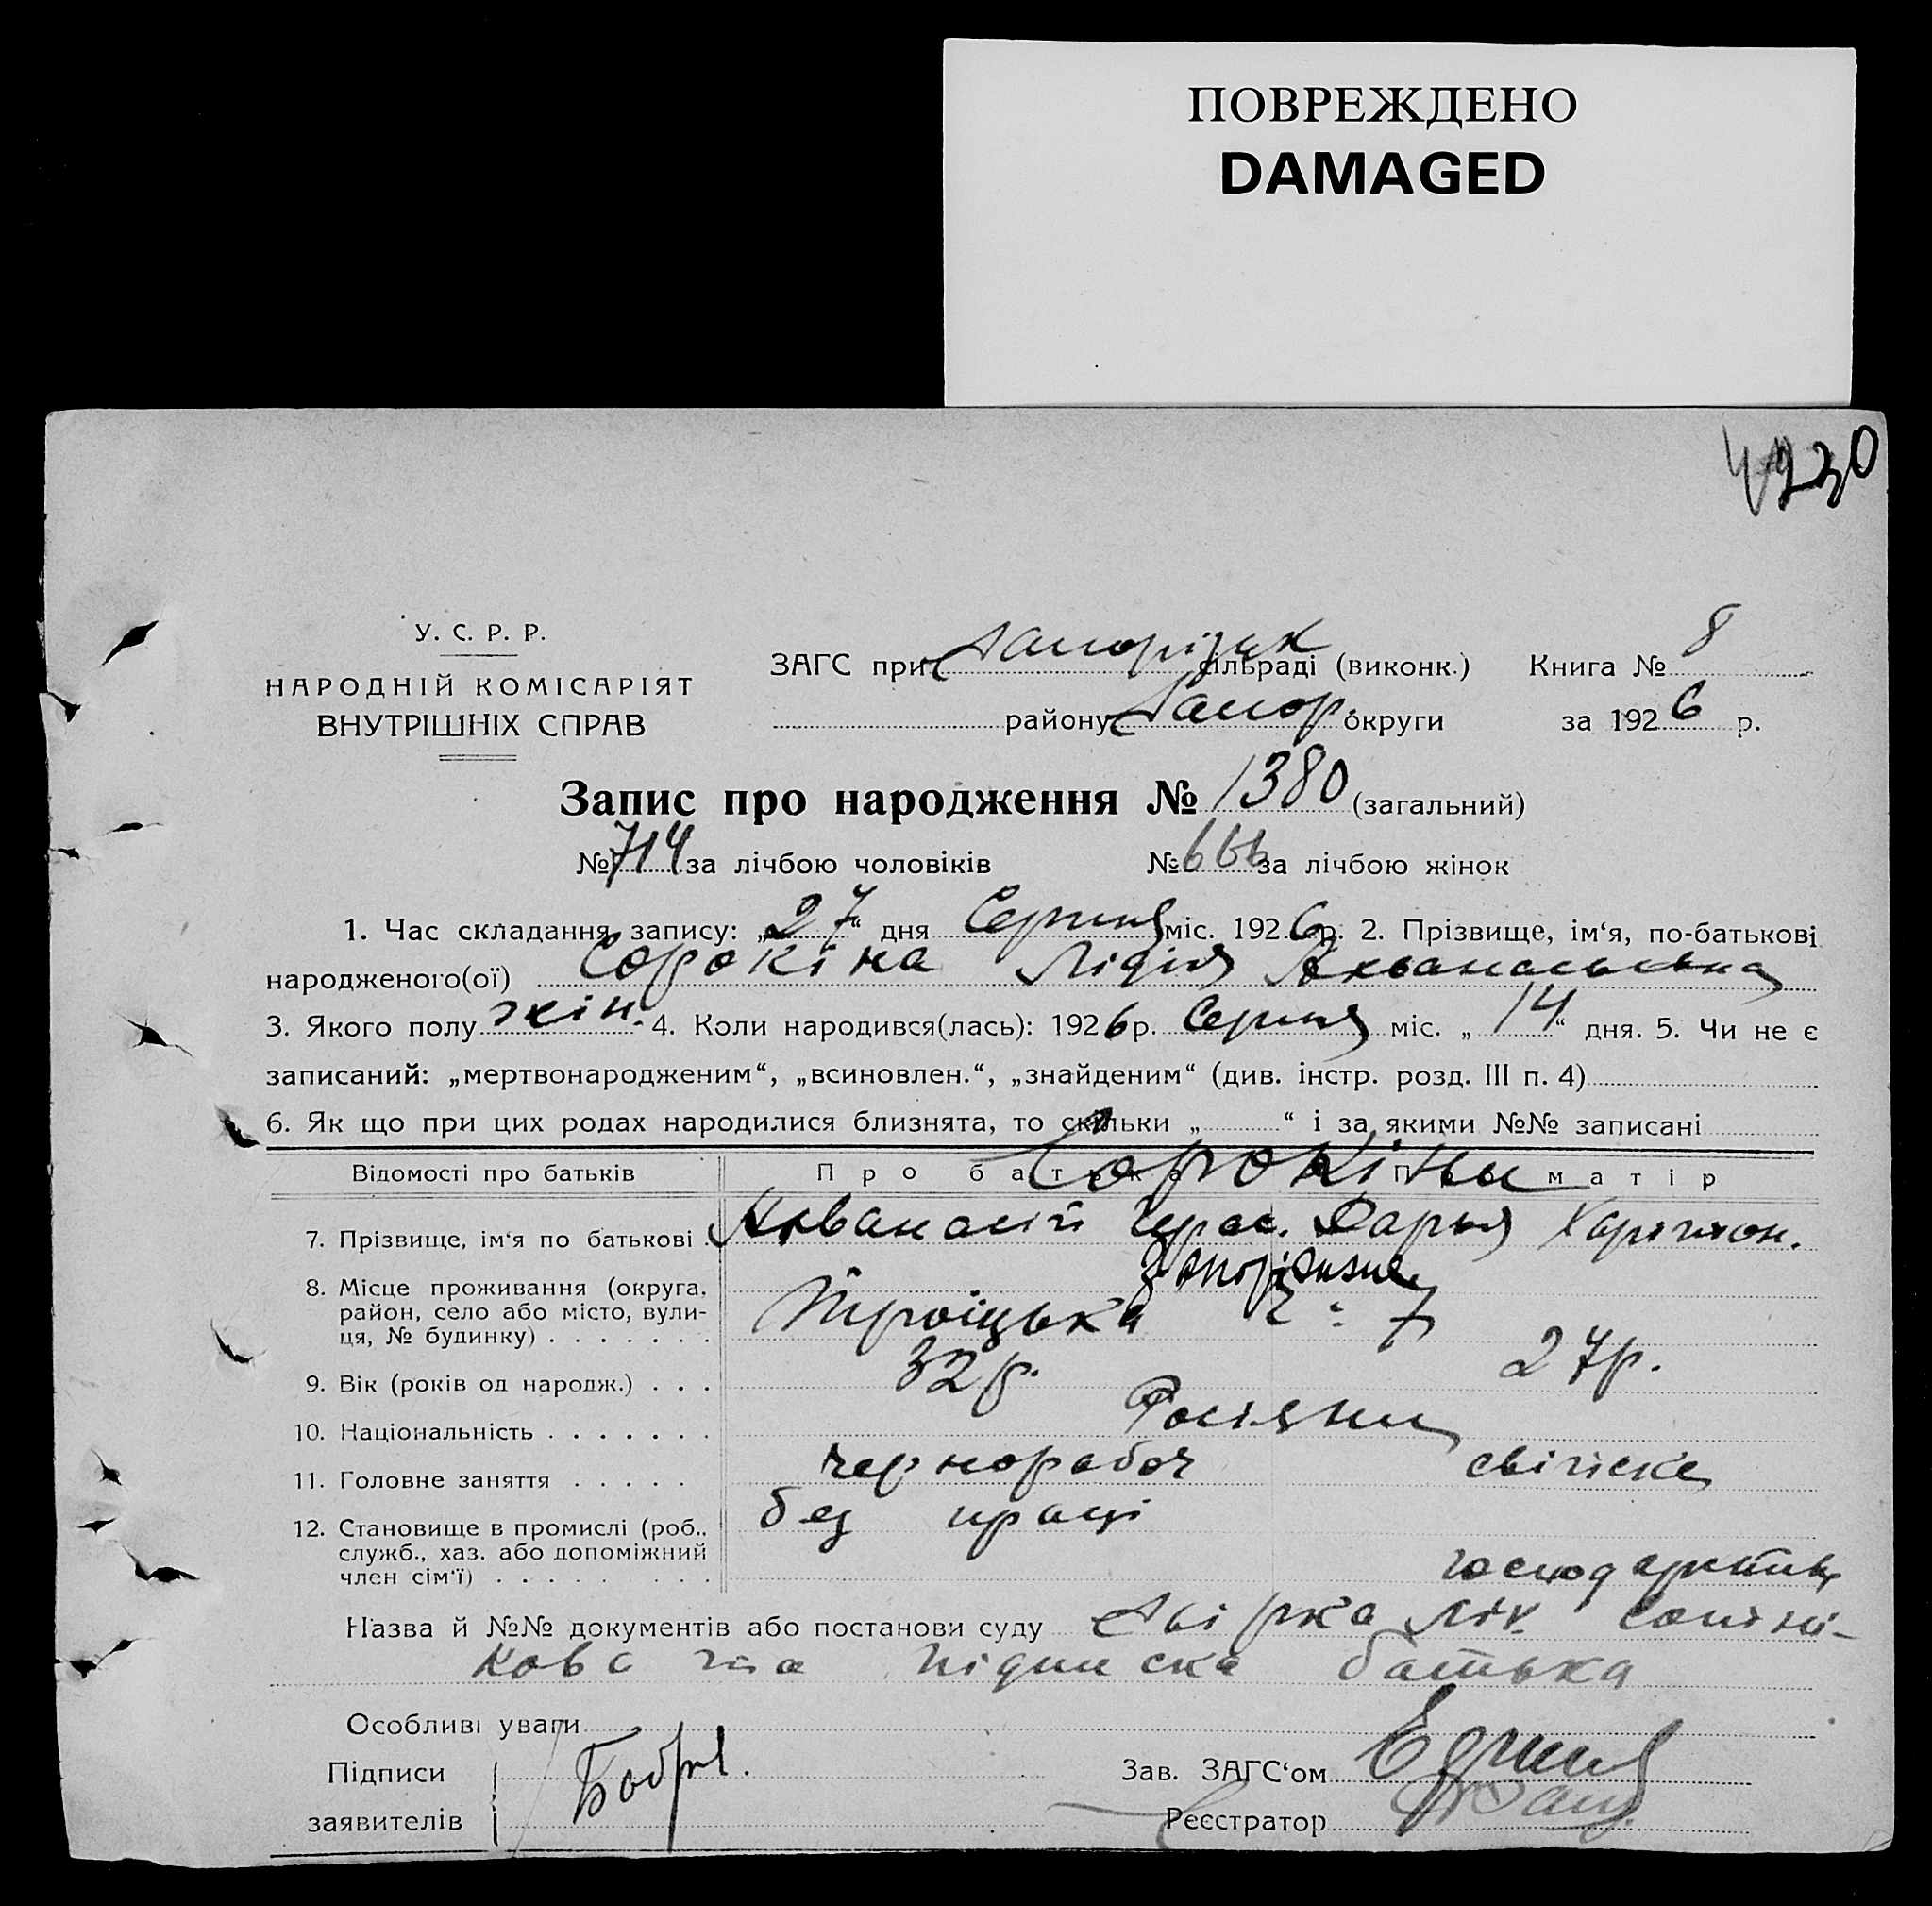 ПОВРЕЖДЕНО
DAMAGED
230
У. С. Р. Р.
НАРОДНІЙ КОМІСАРІЯТ
ВНУТРІШНІХ СПРАВ
ЗАГС при Запорізьк сільраді (виконк.) Книга № 8
району Запор. округи за 1926 р.
Запис про народження № 1380 (загальний)
№ 714 за лічбою чоловіків № 666 за лічбою жінок
1. Час складання запису: „27“ дня Серпня міс. 1926 р. 2. Прізвище, ім‘я, по-батькові
народженого(ої) Сорокіна Лідія
3. Якого полу жін. 4. Коли народився(лась): 1926 р. Серпня міс. „14“ дня. 5. Чи не є
записаний: „мертвонародженим“, „всиновлен.“, „знайденим“ (див. інстр. розд. III п. 4)
6. Як що при цих родах народилися близнята, то скільки „ “ і за якими №№ записані
Відомості про батьків Про батька Про матір
Сорокіны
7. Прізвище, ім‘я по батькові Герас. Дарья Харитон.
8. Місце проживання (округа, район, село або місто, вули-
ця, № будинку) Троїцька 7
9. Вік (років од народж.) 32 р. 27 р.
10. Національність Росіяни
11. Головне заняття чернорабоч
12. Становище в промислі (роб., без праці
служб., хаз. або допоміжний
член сім‘ї)
Назва й №№ документів або постанови суду
та підписка батька
Особливі уваги
Підписи
заявителів
Зав. ЗАГС‘ом
Реєстратор